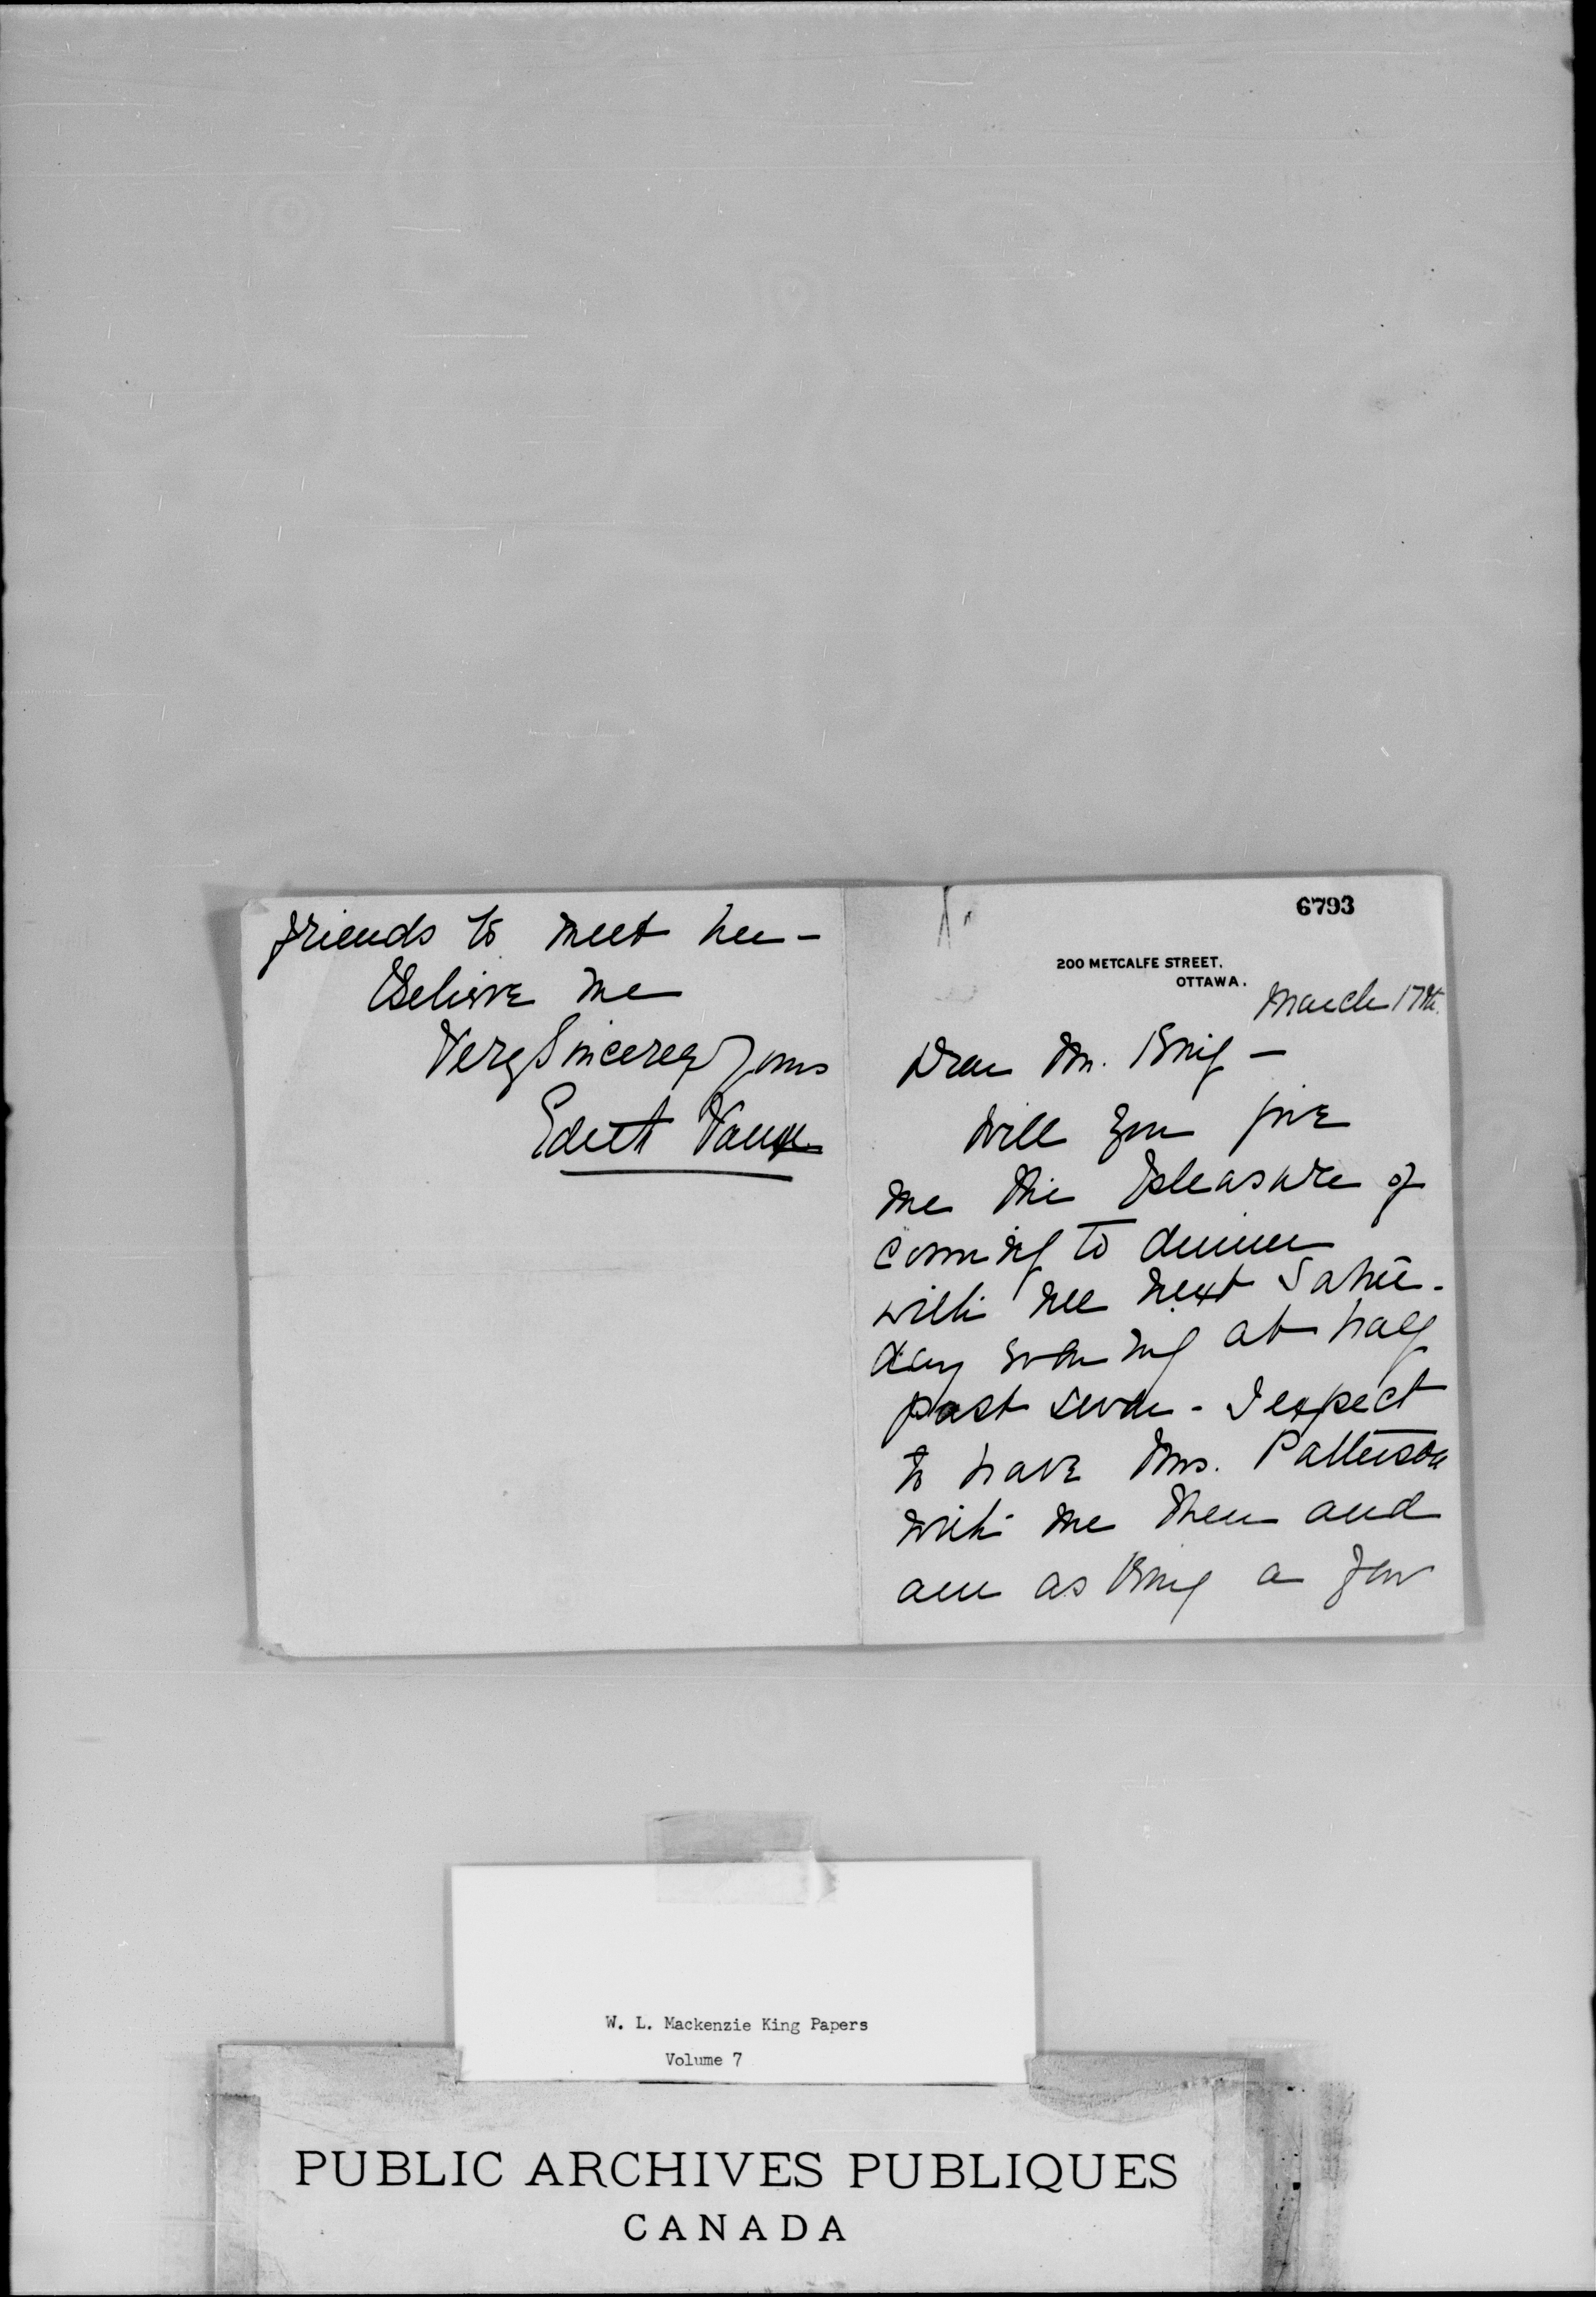 6793
200 METCALFE STREET.
OTTAWA.
March 17th.
Dear Mr. King —
Will you give
me the pleasure of
coming to dinner
with me next Satur-
day evening at half
past seven - I expect
to have Mrs. Patterson
with me then and
am asking a few
friends to meet her -
Believe me
Very Sincerely Yours
Edith
W. L. Mackenzie King Papers
Volume 7
PUBLIC ARCHIVES PUBLIQUES
CANADA